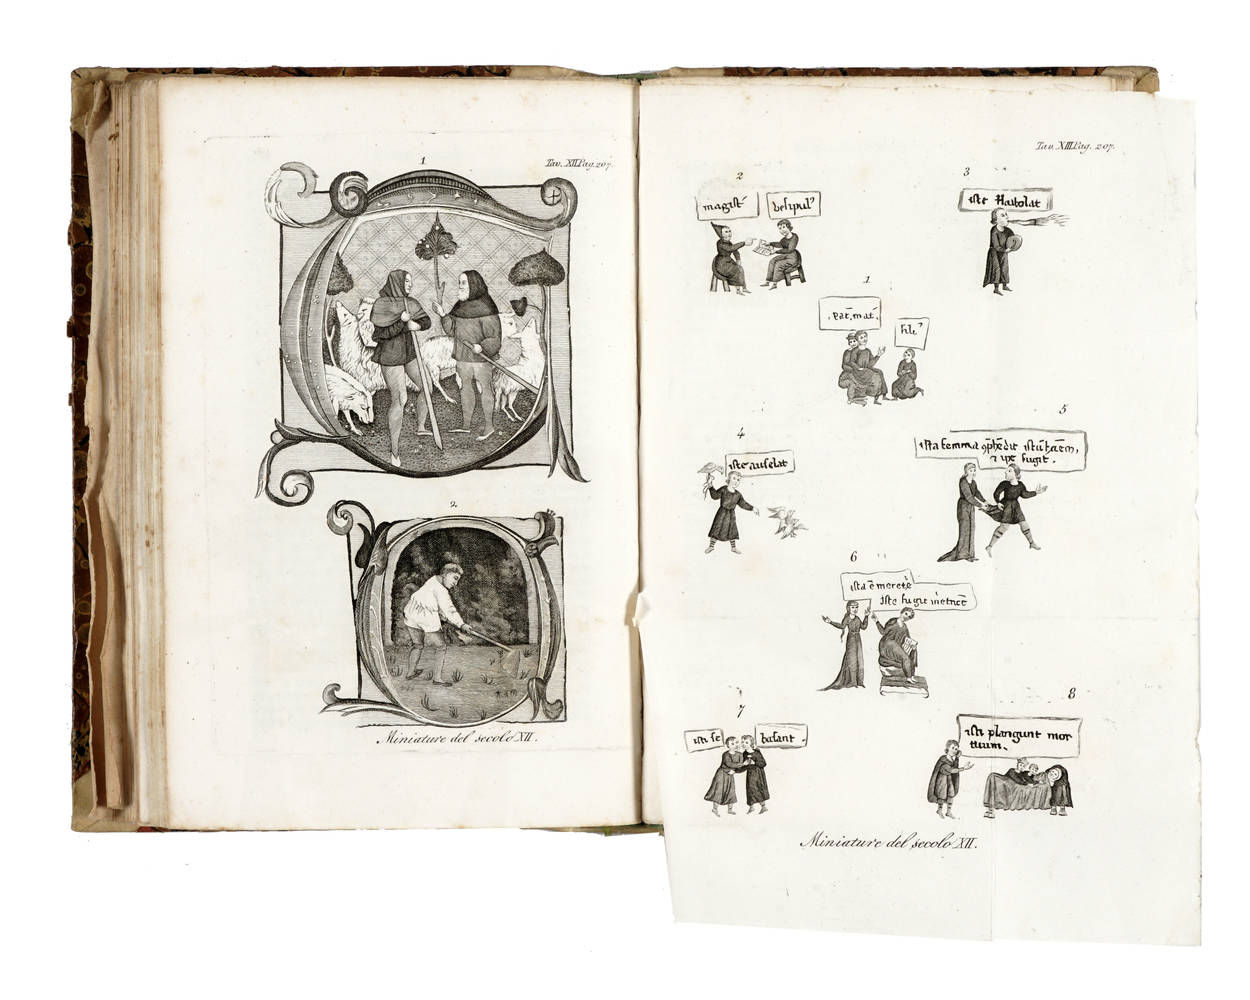 1
Tav. XII Pag. 207.
2
Miniature del secolo XII.
Tav. XIII Pag. 207.
2
magist̄
desipul⁹
3
iste flabolat
1
.pat̄.mat̄.
file⁹
4
iste auselat
5
ista femma
2 ipe fugit.
6
iste fugit
7
isti se
basant.
8
isti plangunt mor
tuum.
Miniature del secolo XII.